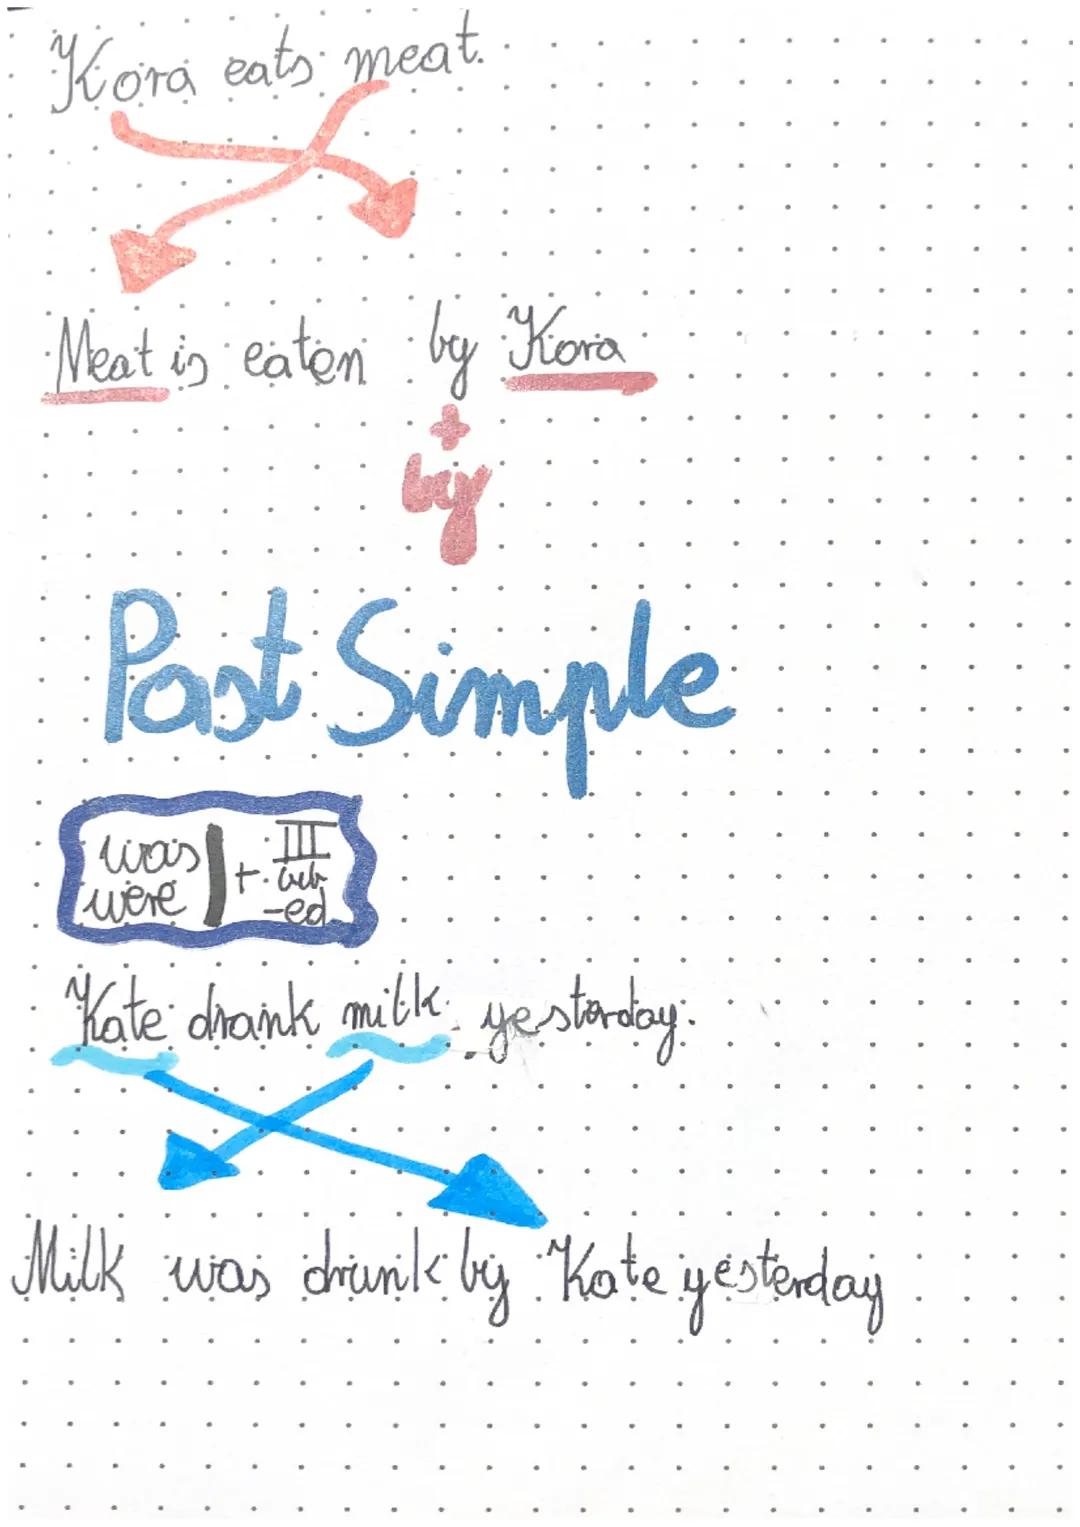 Kora eats meat.
Meat is eaten by Kora
+
by
Past Simple
was
were
+ III
-ed
Kate drank milk yesterday.
Milk was drunk by Kate yesterday